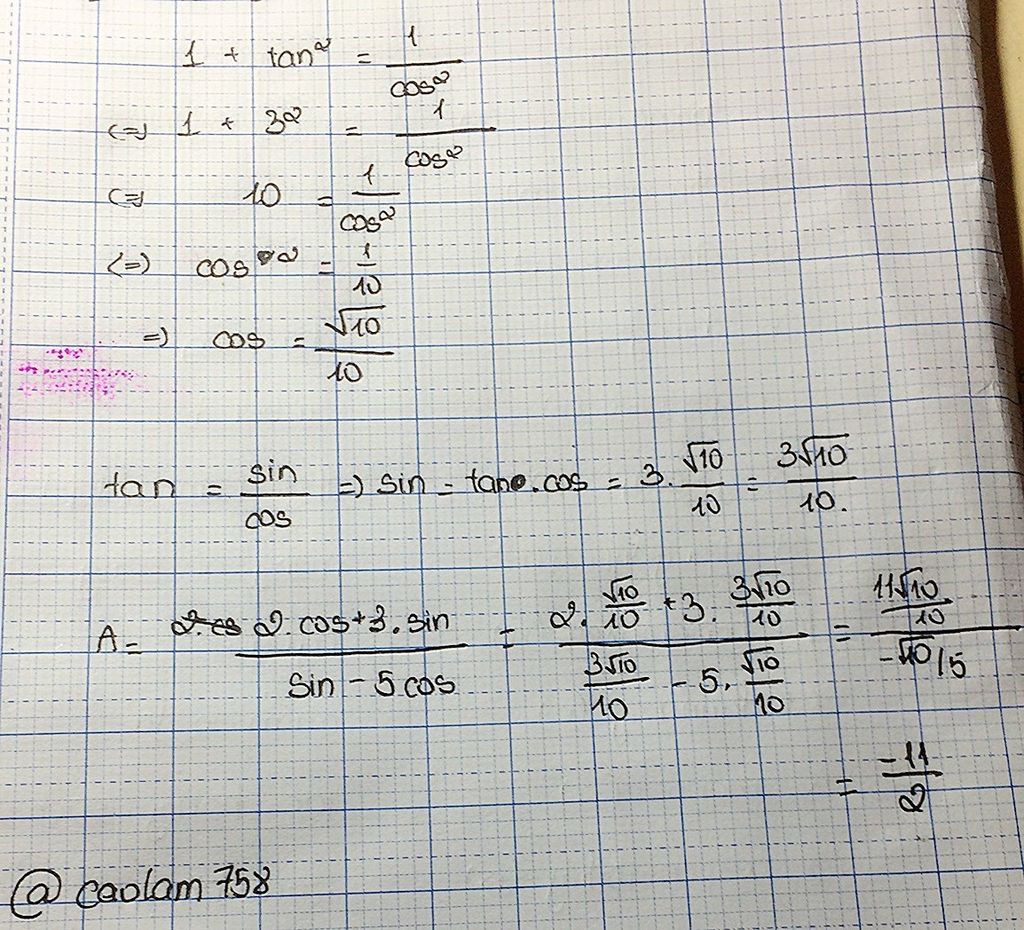 1 + tan² = 1/cos²
<=> 1 + 3² = 1/cos²
<=> 10 = 1/cos²
<=> cos² = 1/10
=> cos = √10/10
tan = sin/cos => sin = tan.cos = 3.√10/10 = 3√10/10.
A = (2.cos+3.sin)/(sin - 5cos) = (2.√10/10 + 3.3√10/10)/(3√10/10 - 5.√10/10) = (11√10/10)/(-√10/5)
= -11/2
@caolam758